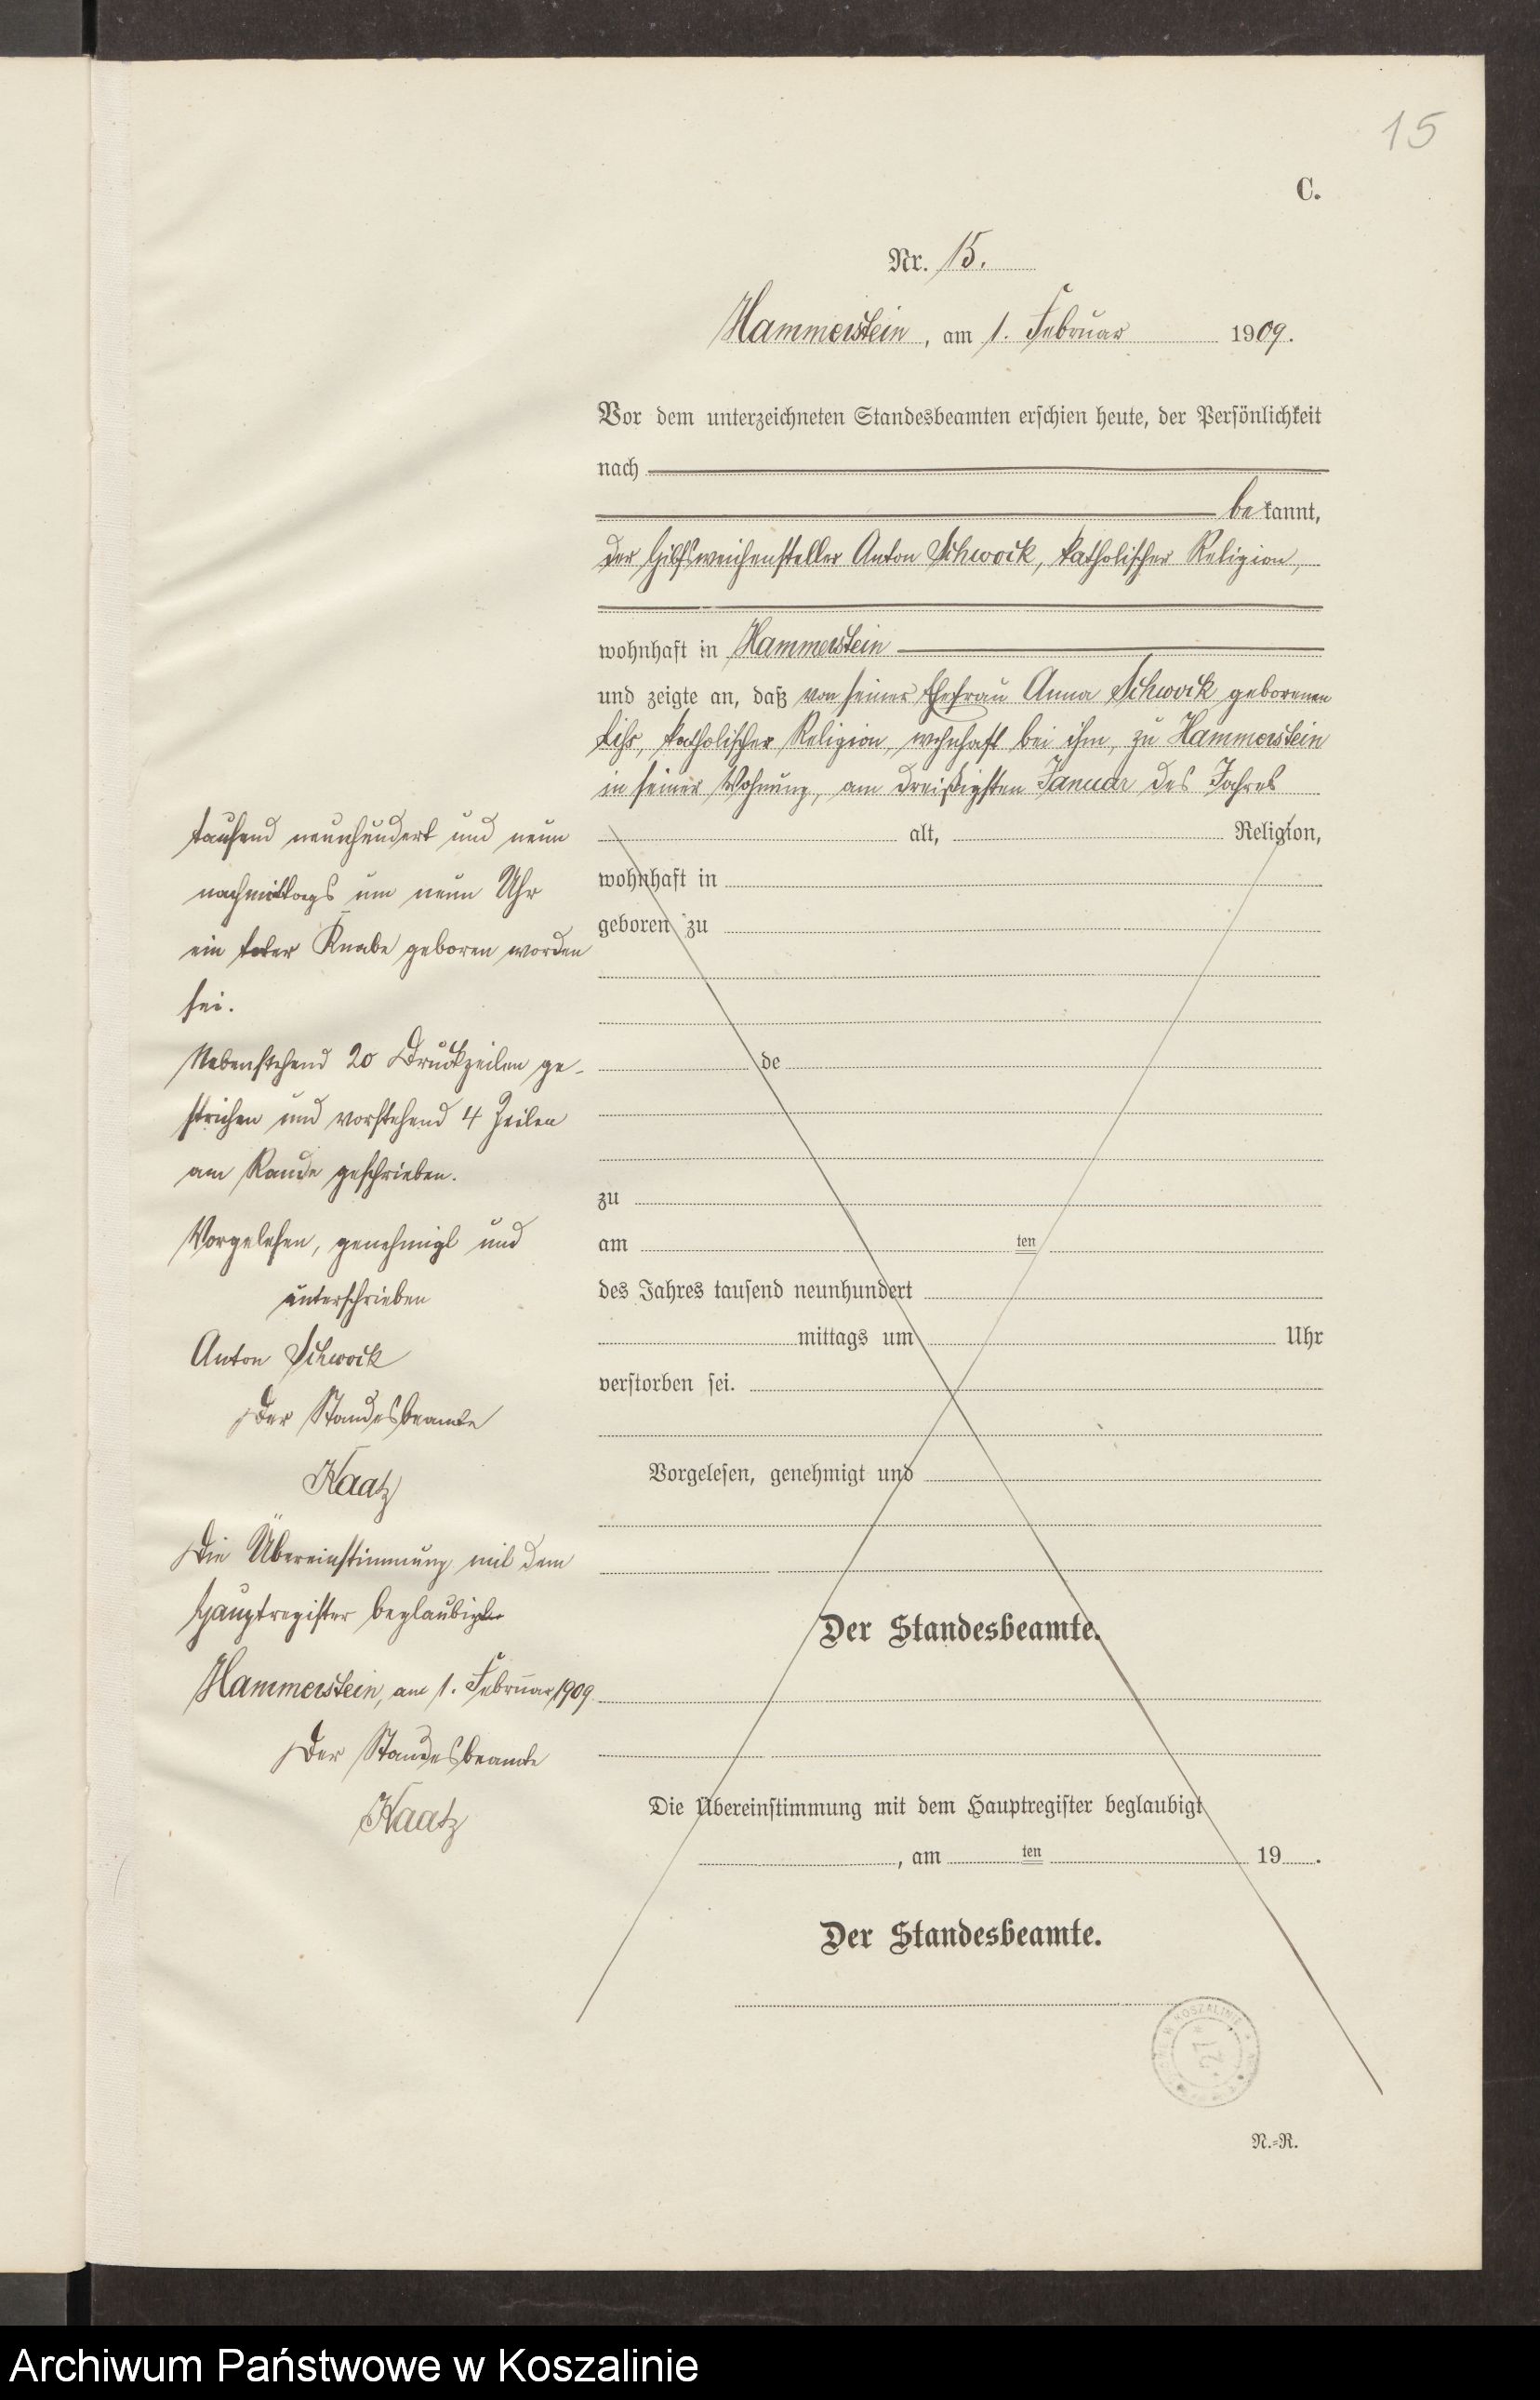 15
C.
Nr. 15.
Hammerstein, am 1. Februar 1909.
Vor dem unterzeichneten Standesbeamten erschien heute, der Persönlichkeit
nach
bekannt,
der Hilfsweichensteller Anton Schwock, katholischer Religion,
wohnhaft in Hammerstein
und zeigte an, daß von seiner Ehefrau Anna Schwock geborenen
katholischer Religion, wohnhaft bei ihm, zu Hammerstein
in seiner Wohnung, am dreißigsten Januar des Jahres
tausend neunhundert und neun
nachmittags um neun Uhr
ein toter Knabe geboren worden
sei.
Nebenstehend 20 Druckzeilen ge-
strichen und vorstehend 4 Zeilen
am Rande geschrieben.
Vorgelesen, genehmigt und
unterschrieben
Anton Schwock
Der Standesbeamte
Kaatz
Die Übereinstimmung mit dem
Hauptregister beglaubigt
Hammerstein, am 1. Februar 1909.
Der Standesbeamte
Kaatz
alt, Religion,
wohnhaft in
geboren zu
de
zu
am ten
des Jahres tausend neunhundert
mittags um Uhr
verstorben sei.
Vorgelesen, genehmigt und
Der Standesbeamte.
Die Übereinstimmung mit dem Hauptregister beglaubigt
, am ten 19 .
Der Standesbeamte.
W KOSZALINIE
27
N.=R.
Archiwum Państwowe w Koszalinie